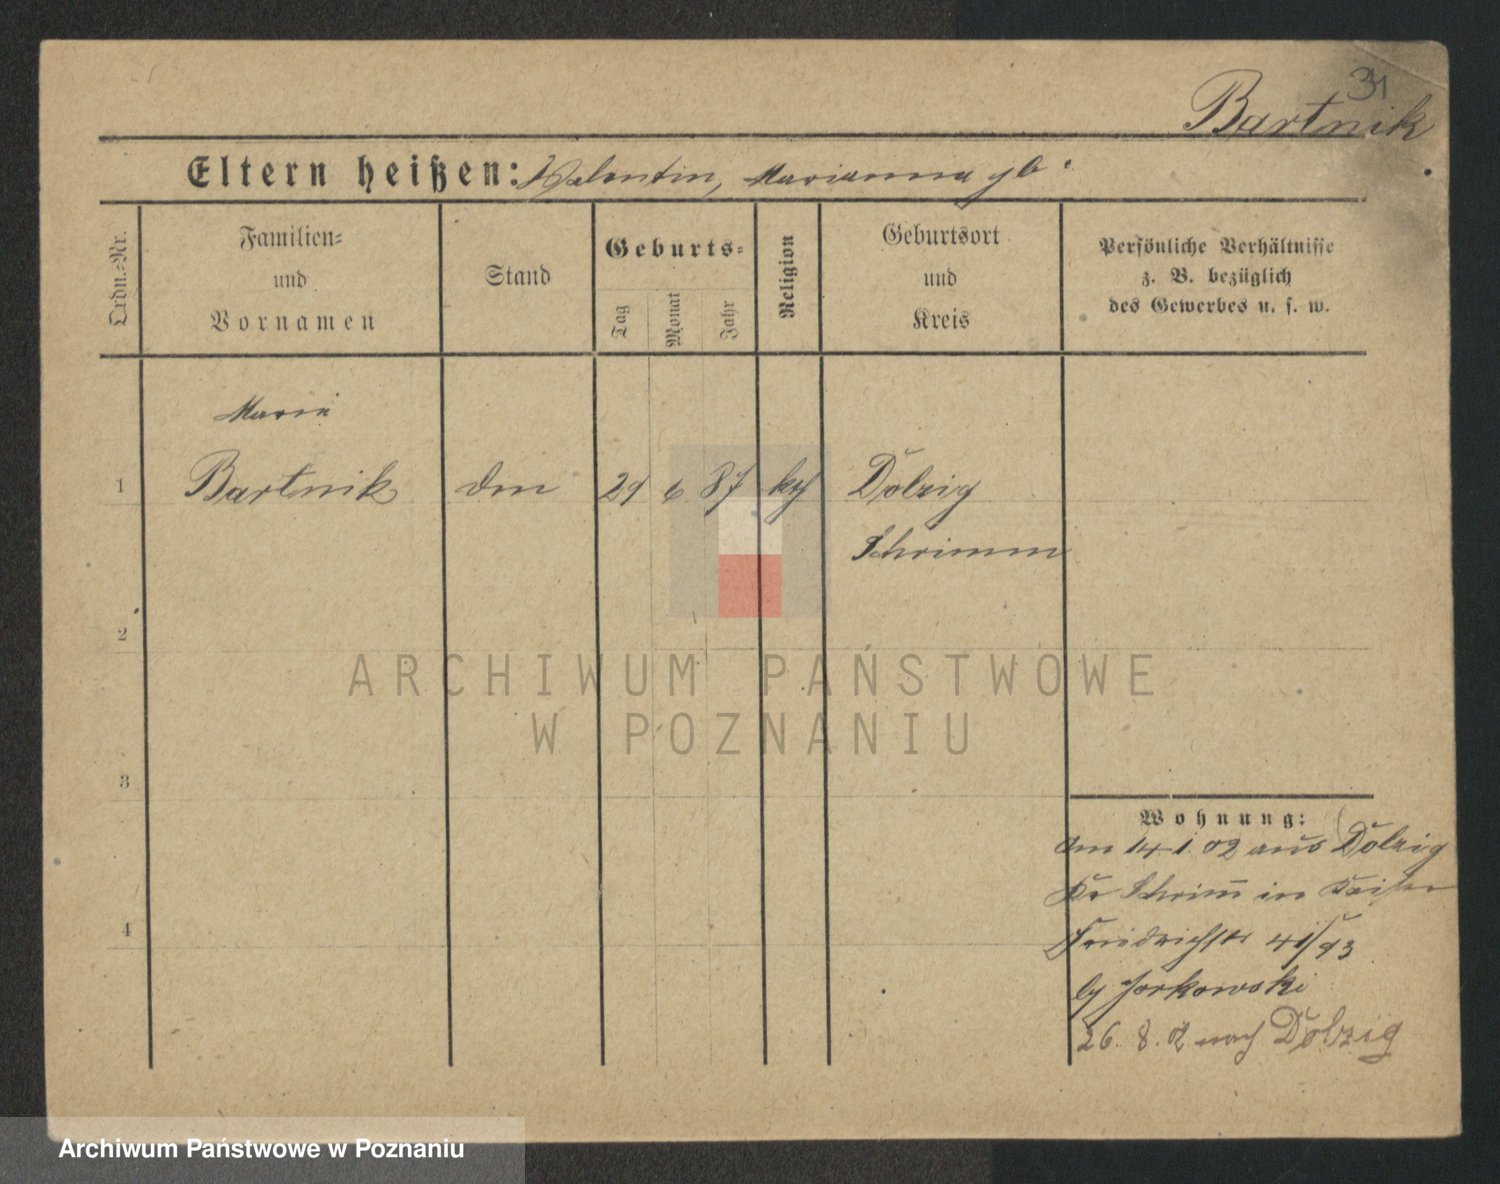 31
Bartnik
Eltern heißen: Valentin, Marianna gb
Ordn.=Nr.
Familien=
und
Vornamen
Stand
Geburts=
Tag
Monat
Jahr
Religion
Geburtsort
und
Kreis
Persönliche Verhältnisse
z. B. bezüglich
des Gewerbes u. s. w.
Marie
1 Bartnik 29 6 87 kth Dolzig
Schrimm
2
3
4
Wohnung:
Am 14 1 02 aus Dolzig
Kr Schrim̄ in Kaiser
Friedrichstr 41/93
by Jorkowski
26. 8. 02 nach Dolzig
ARCHIWUM PAŃSTWOWE
W POZNANIU
Archiwum Państwowe w Poznaniu